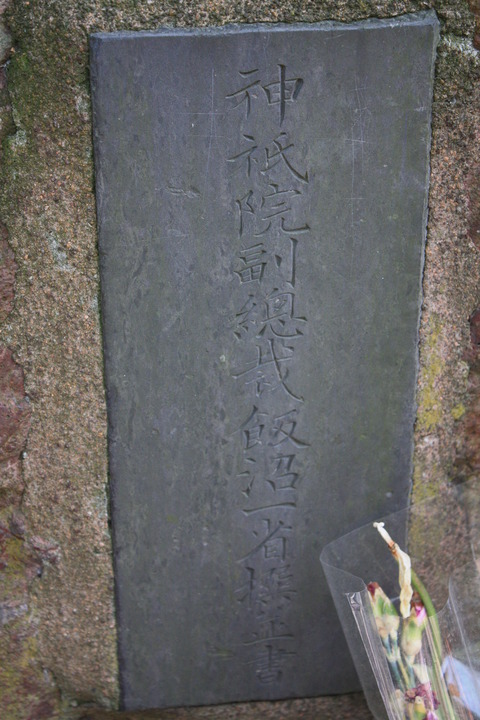 神祇院副總裁飯沼一省撰並書